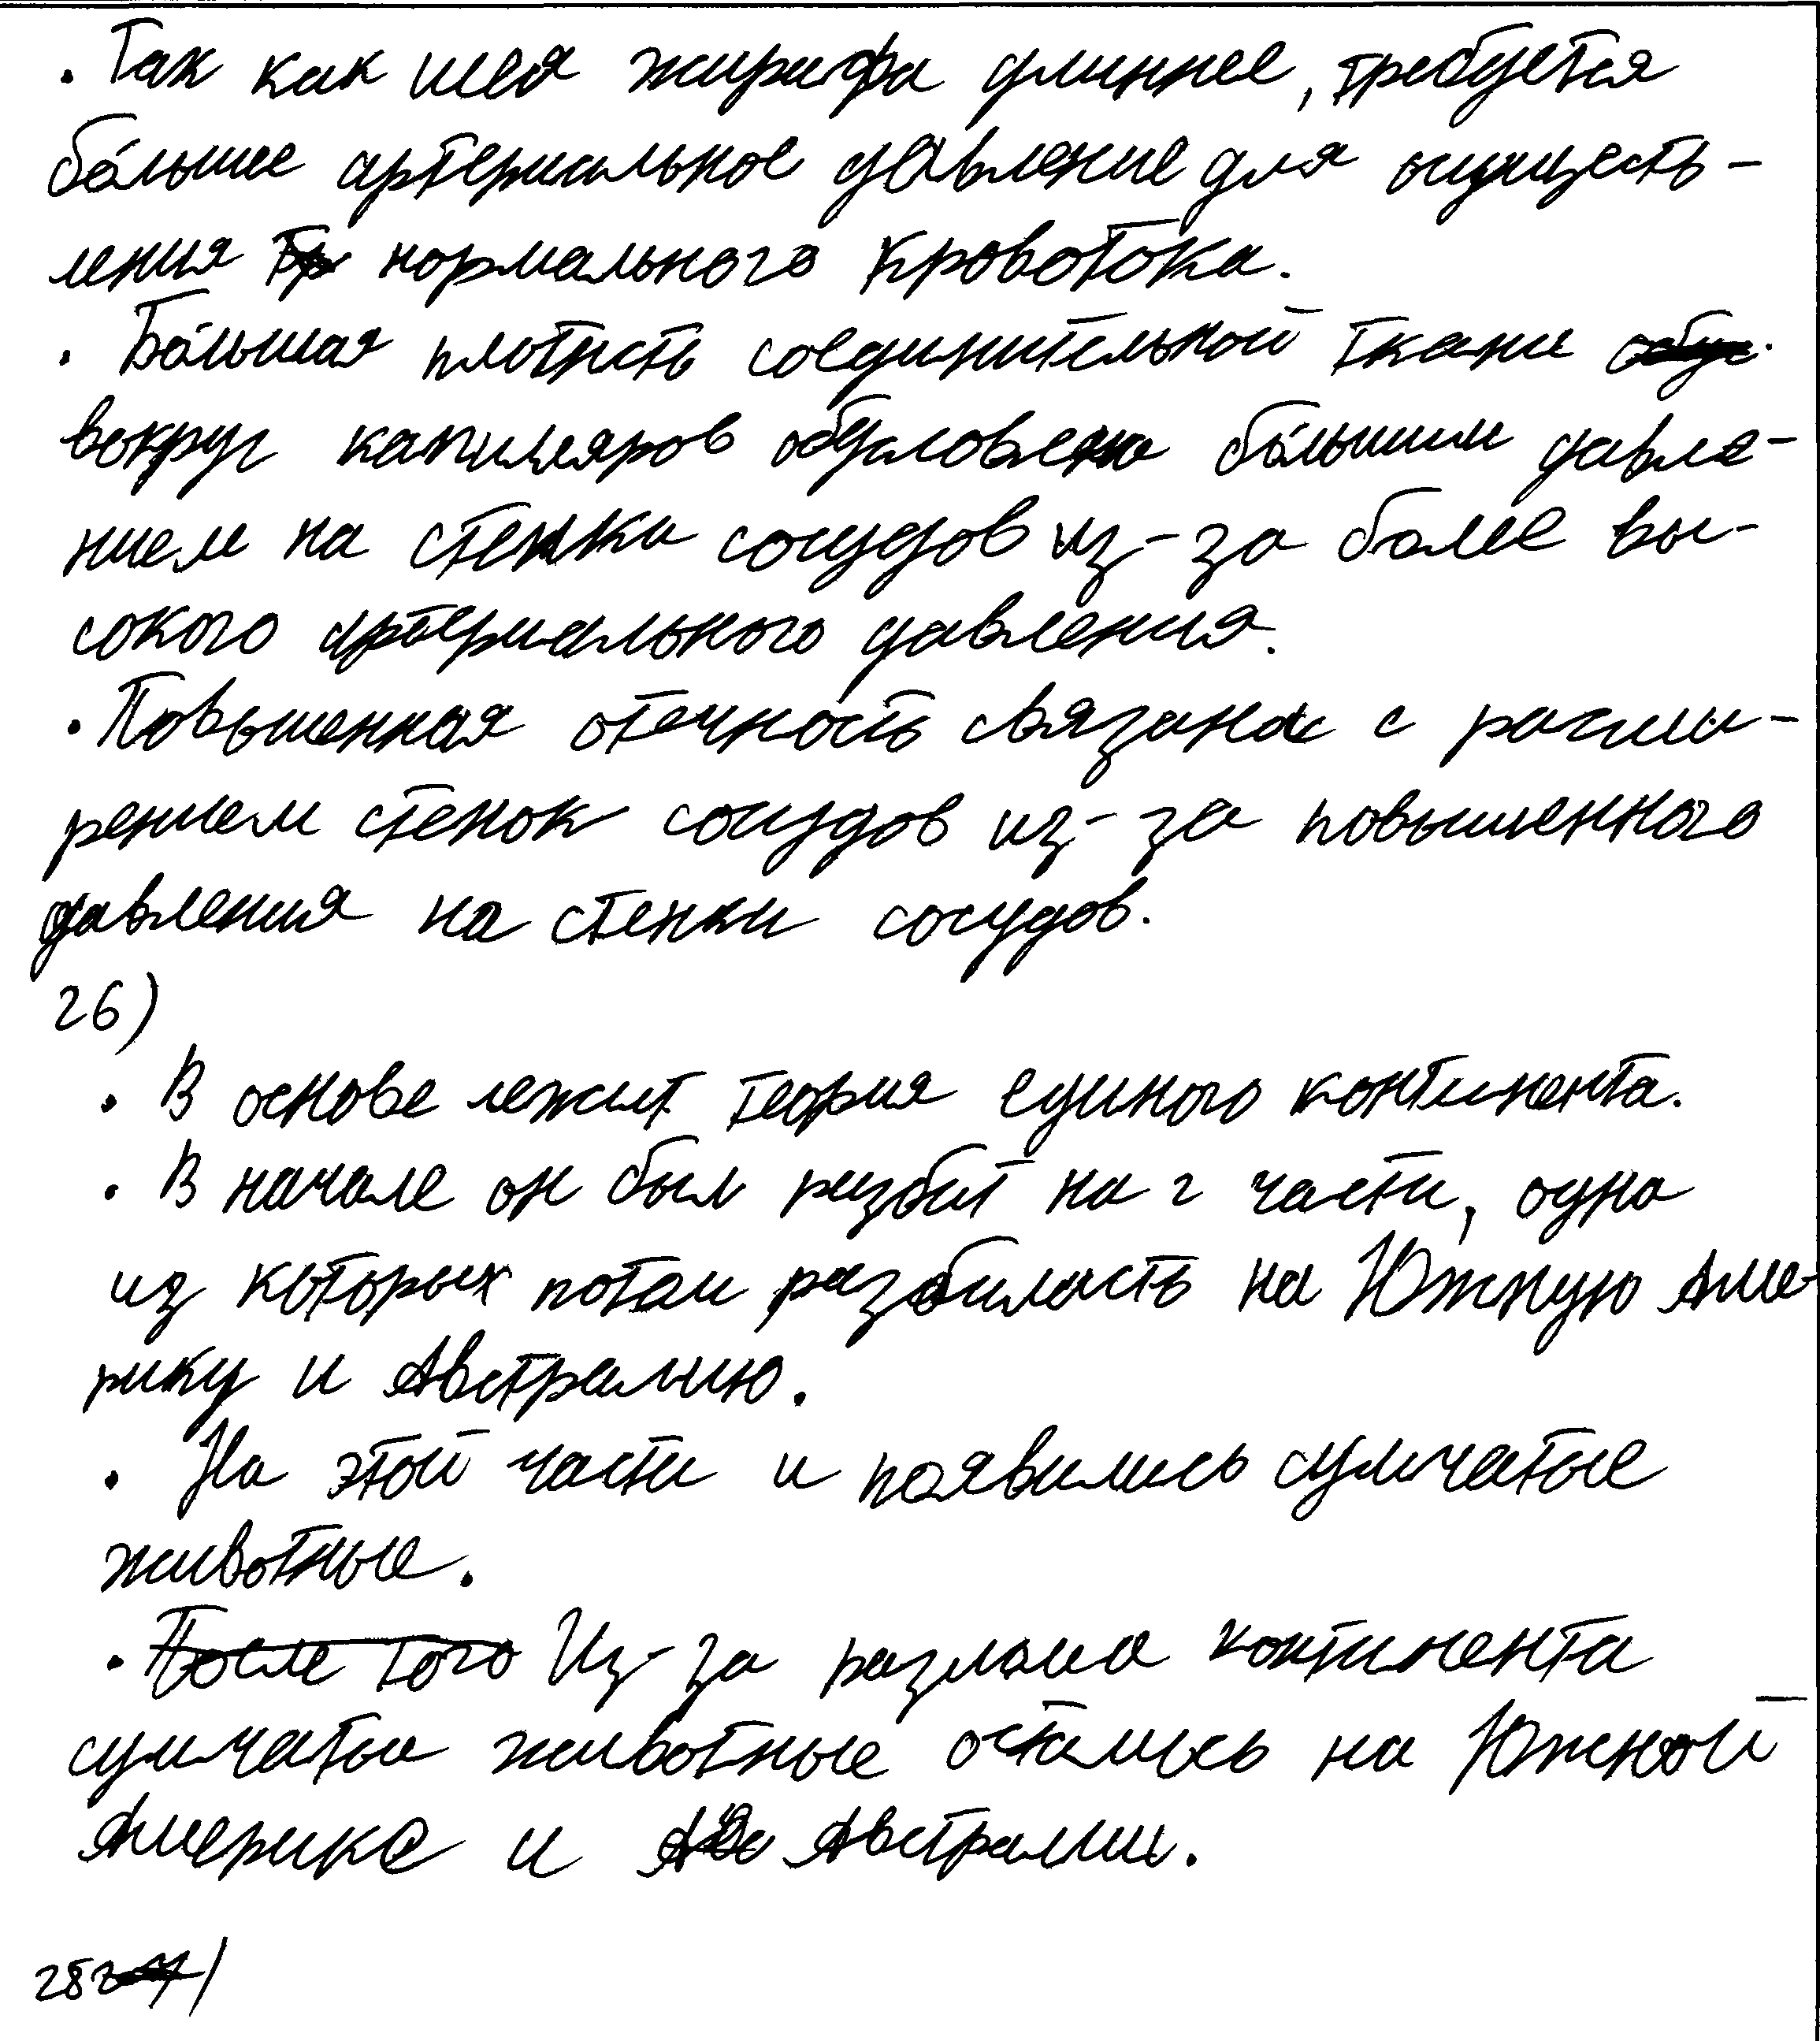 . Так как шея жирафа длиннее, требуется
бо́льшее артериальное давление для осуществ-
ления нормального кровотока.
. Бо́льшая плотность соединительной ткани
вокруг капилляров обусловлена бо́льшим давле-
нием на стенки сосудов из-за более вы-
сокого артериального давления.
. Повышенная отечность связана с расши-
рением стенок сосудов из-за повышенного
давления на стенки сосудов.
26)
. В основе лежит теория единого континента.
. В начале он был разбит на 2 части, одна
из которых потом разбилась на Южную Аме-
рику и Австралию.
. На этой части и появились сумчатые
животные.
. После того Из-за разлома континента
сумчатые животные остались на Южной
Америке и Австралии.
28